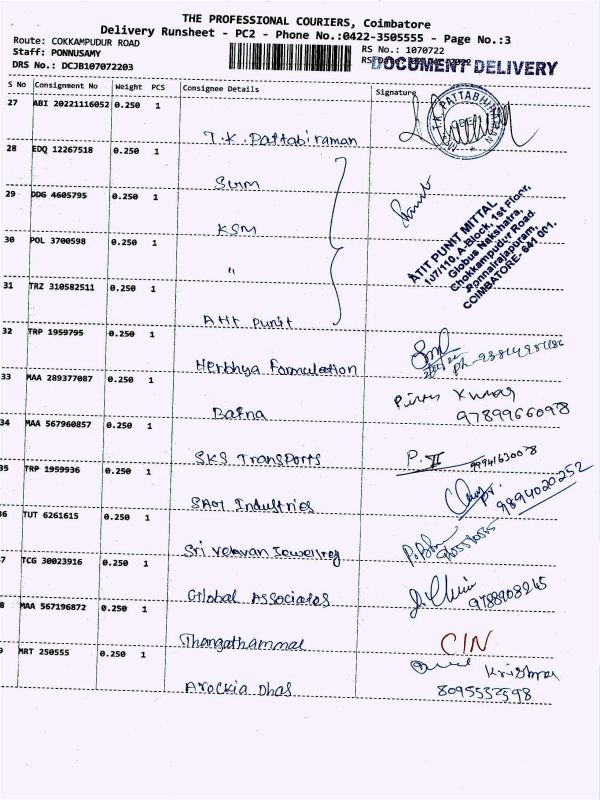 THE PROFESSIONAL COURIERS, Coimbatore
Delivery Runsheet - PC2 - Phone No.:0422-3505555 - Page No.:3
Route: COKKAMPUDUR ROAD
Staff: PONNUSAMY
DRS No.: DCJB107072203
RS No.: 1070722
DOCUMENT DELIVERY
S No Consignment No Weight PCS Consignee Details Signature
27 ABI 20221116052 0.250 1
T.K. Pattabiraman
28 EDQ 12267518 0.250 1
29 DDG 4605795 0.250 1
KSM
30 POL 3700598 0.250 1
"
ATIT PUNIT MITTAL
107/110, A-Block, 1st Floor,
Globus Nakshatra,
Chokkampudur Road
Ponnairajapuram,
COIMBATORE- 641 001.
31 TRZ 310582511 0.250 1
Atit Punit
32 TRP 1959795 0.250 1
Herbhya Formulation
33 MAA 289377087 0.250 1
Bafna
9789966098
34 MAA 567960857 0.250 1
SKS Transports
P.
99941630078
35 TRP 1959936 0.250 1
Industries
9894020252
36 TUT 6261615 0.250 1
Sri Velavan Jewellrey
TCG 30023916 0.250 1
Global Associates
9788908265
8 MAA 567196872 0.250 1
Thangathammal
CIN
9 MRT 250555 0.250 1
Arockia Dhas
Krishna
8095532598